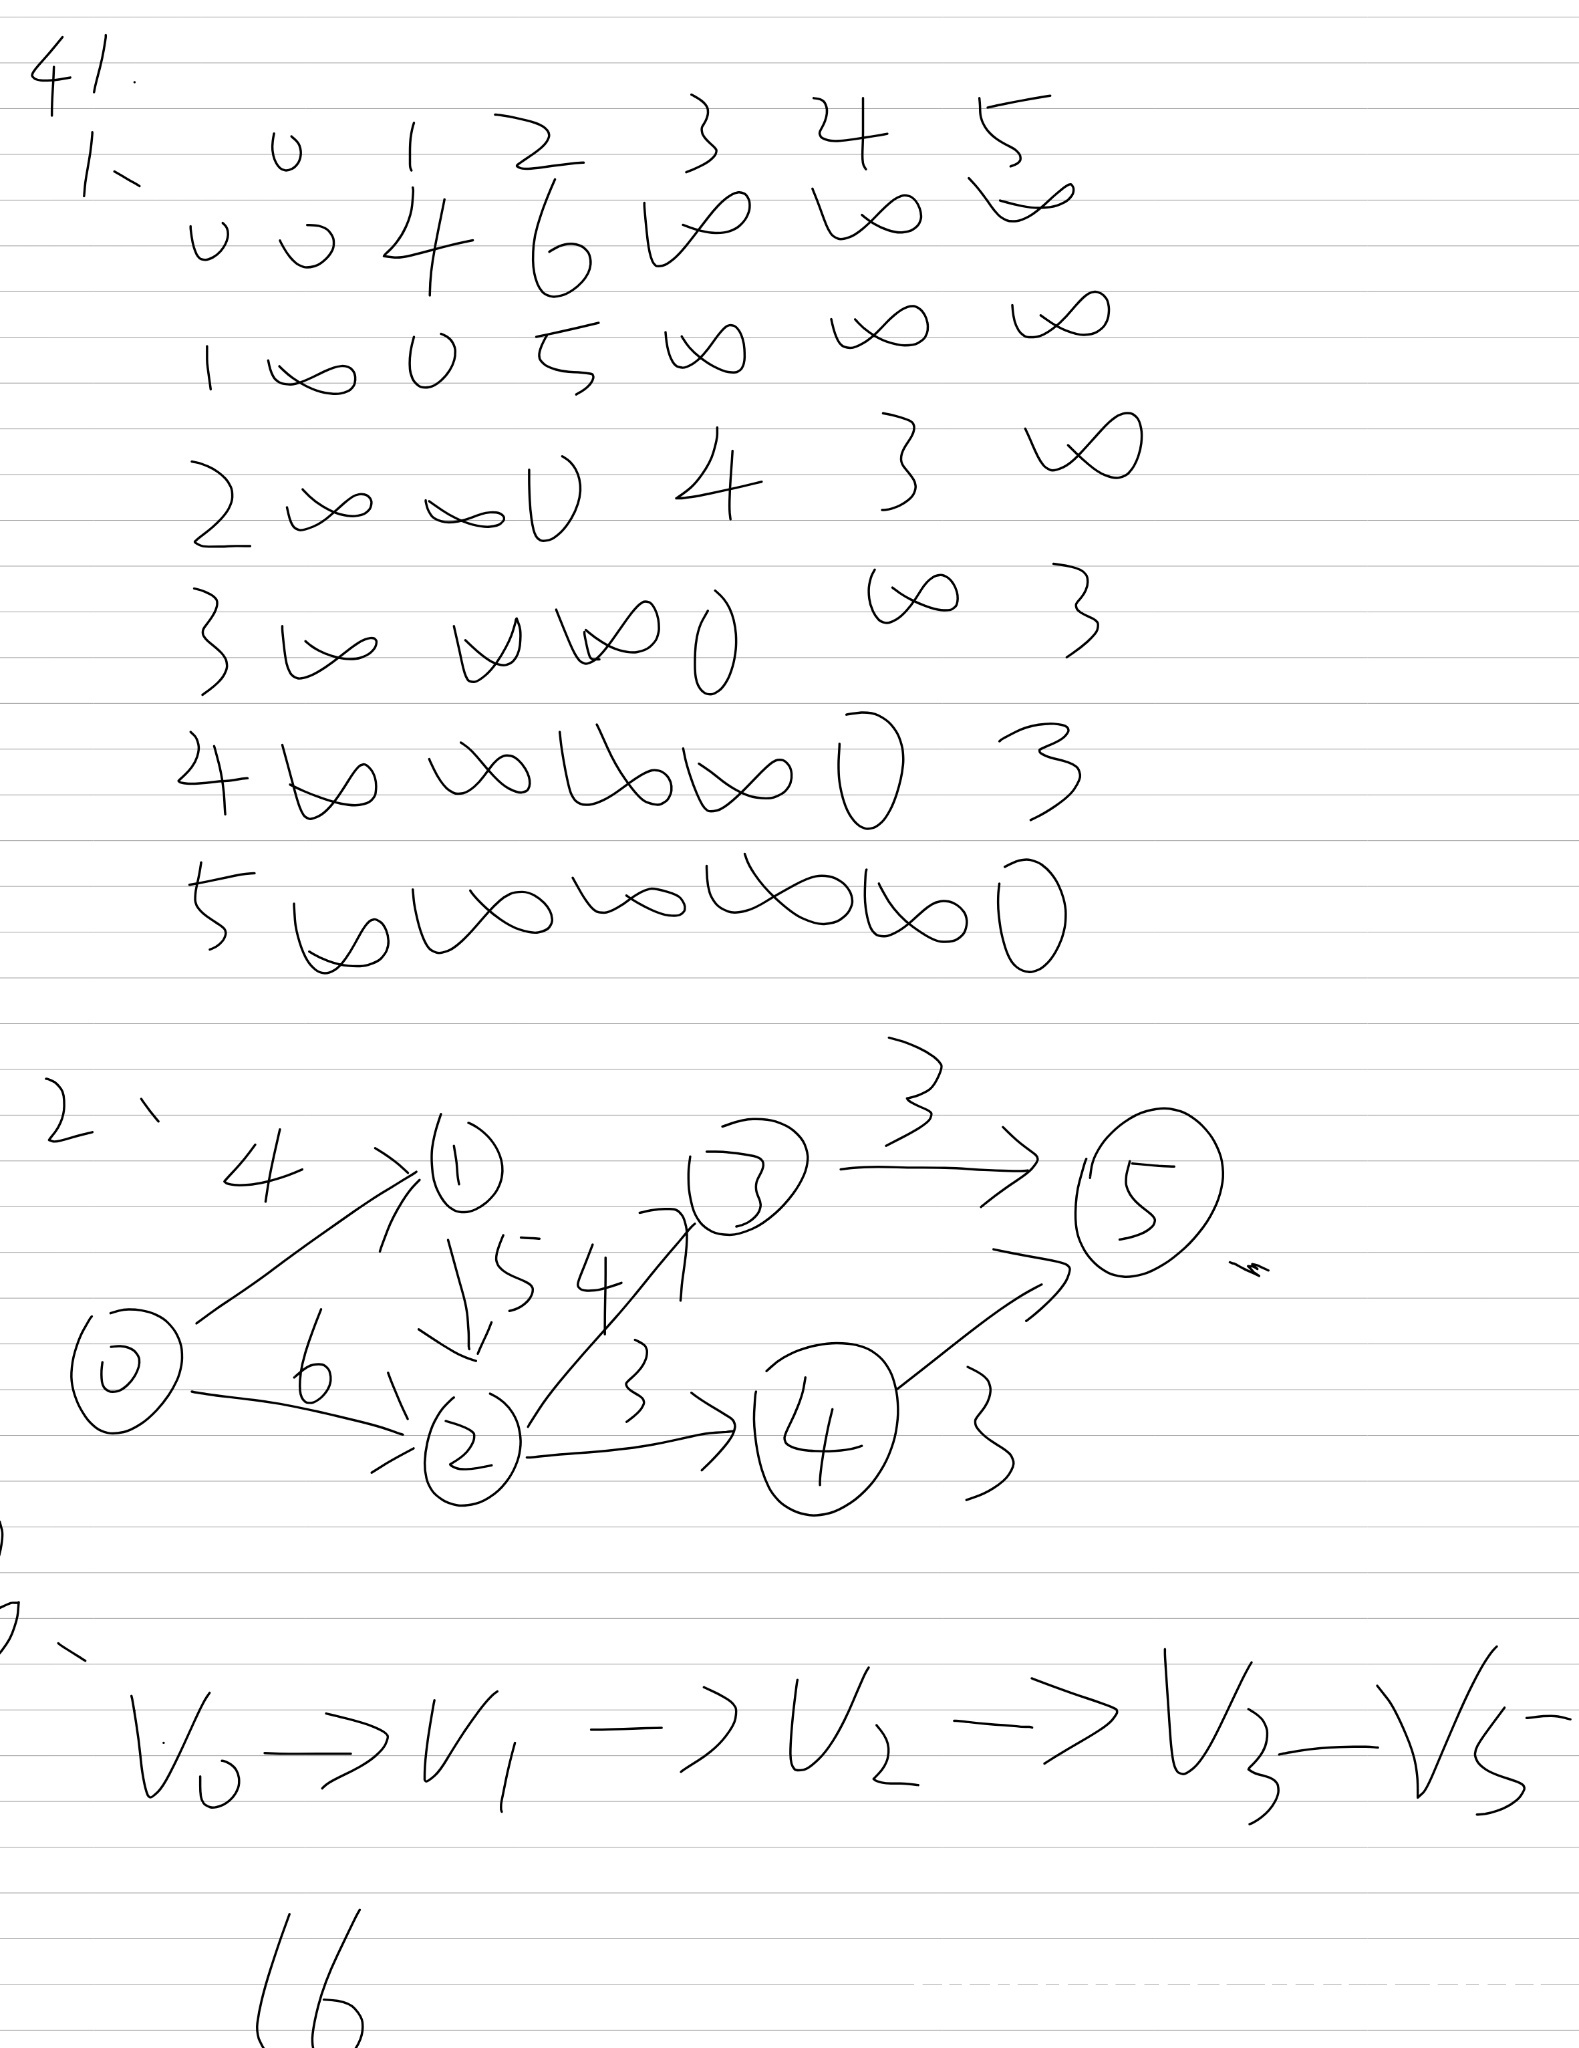 41.
1、 0 1 2 3 4 5
0 0 4 6 ∞ ∞ ∞
1 ∞ 0 5 ∞ ∞ ∞
2 ∞ ∞ 0 4 3 ∞
3 ∞ ∞ ∞ 0 ∞ 3
4 ∞ ∞ ∞ ∞ 0 3
5 ∞ ∞ ∞ ∞ ∞ 0
2、
4 1 3 3 5
5 4
0 6 3
2 4 3
V0 → V1 → V2 → V3 — V5
16